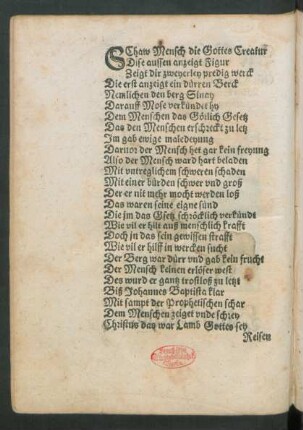 SChaw Mensch die Gottes Creatur
Dise aussen anzeigt Figur
Zeigt dir zweyerley predig werck
Die erst anzeigt ein dürren Berck
Nemlichen den berg Sinay
Darauff Mose verkündet hy
Dem Menschen das Götlich Gesetz
Das den Menschen erschreckt zu letz
Im gab ewige maledeyung
Daruor der Mensch het gar kein freyung
Also der Mensch ward hart beladen
Mit vntreglichem schweren schaden
Mit einer bürden schwer vnd groß
Der er nit mehr mocht werden loß
Das waren seine eigne sünd
Die jm das Gsetz schröcklich verkündt
Wie vil er hilt auß menschlich krafft
Doch jn das sein gewissen strafft
Wie vil er hilff in wercken sucht
Der Berg war dürr vnd gab kein frucht
Der Mensch keinen erlöser west
Des wurd er gantz trostloß zu letzt
Biß Johannes Baptista klar
Mit sampt der Prophetischen schar
Dem Menschen zeiget vnde schrey
Christus das war Lamb Gottes sey
Reisen